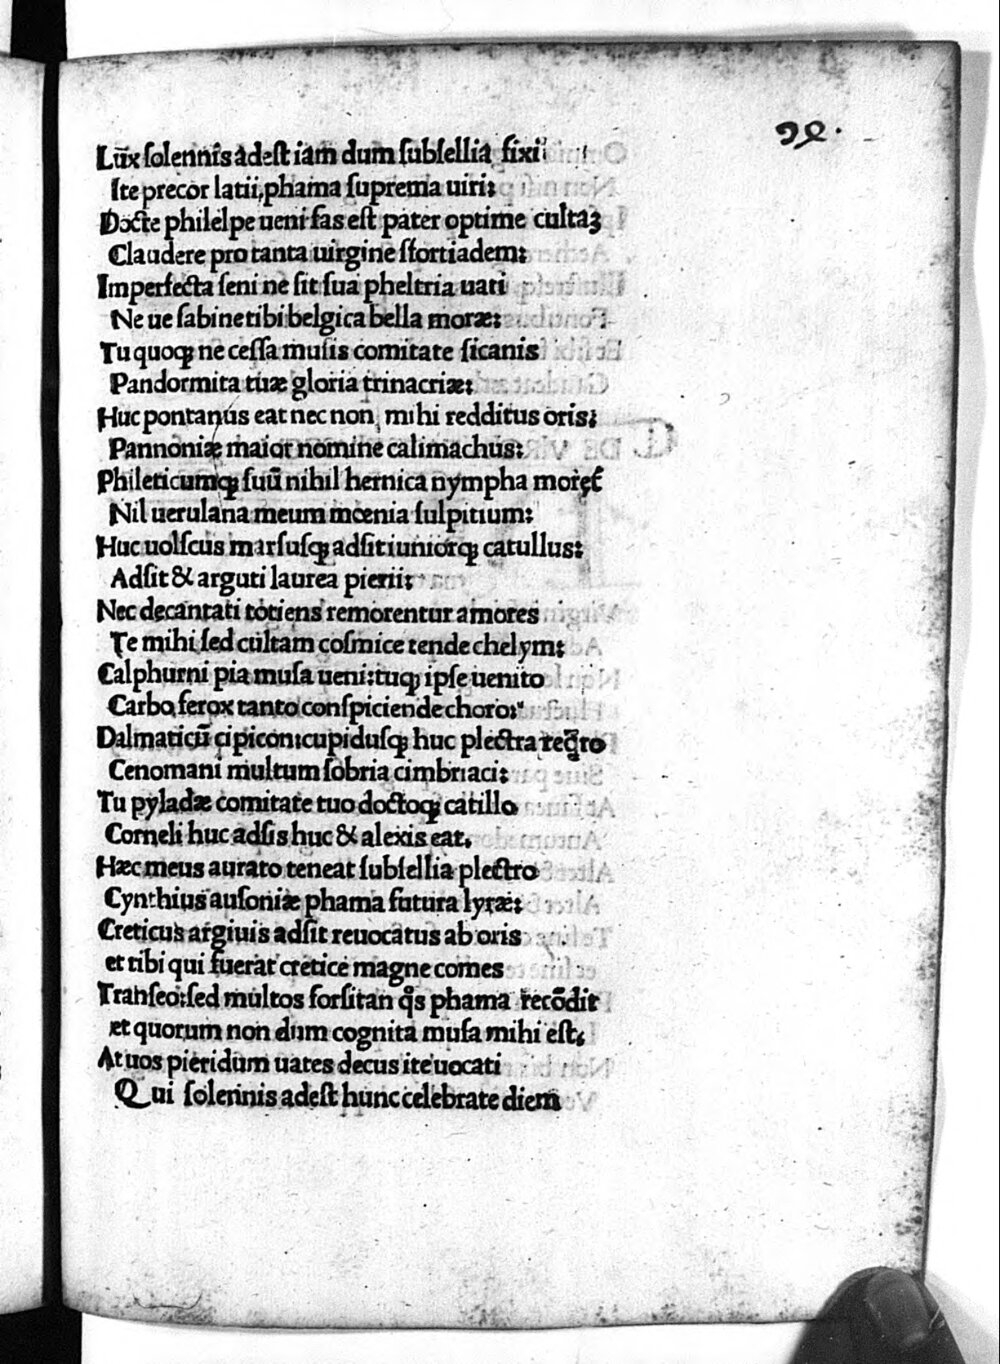 Lūx ſolennis adeſt iam dum ſubſellia fixi
Ite precor latii, phama ſuprema uiri:
Docte philelpe ueni fas eſt pater optime cultaȝ
Claudere pro tanta uirgine ſfortiadem:
Imperfecta ſeni ne ſit ſua pheltria uati
Ne ue ſabine tibi belgica bella moræ:
Tu quoqꝫ ne ceſſa muſis comitate ſicanis
Pandormita tuæ gloria trinacriæ:
Huc pontanus eat nec non mihi redditus oris:
Pannoniæ maior nomine calimachus:
Phileticumqꝫ ſuū nihil hernica nympha moret̃
Nil uerulana meum mœnia ſulpitium:
Huc uolſcus marſuſqꝫ adſit iuniorqꝫ catullus:
Adſit & arguti laurea pierii:
Nec decantati totiens remorentur amores
Te mihi ſed cultam coſmice tende chelym:
Calphurni pia muſa ueni: tuqꝫ ipſe uenito
Carbo ferox tanto conſpiciende choro:
Dalmaticū cipicon: cupiduſqꝫ huc plectra req̄ro
Cenomani multum ſobria cimbriaci:
Tu pyladæ comitate tuo doctoqꝫ catillo
Corneli huc adſis huc & alexis eat.
Hæc meus aurato teneat ſubſellia plectro
Cynthius auſoniæ phama futura lyræ:
Creticus argiuis adſit reuocatus ab oris
et tibi qui fuerat cretice magne comes
Tranſeo: ſed multos forſitan q̄s phama recōdit
et quorum non dum cognita muſa mihi eſt.
At uos pieridum uates decus ite uocati
Qui ſolennis adeſt hunc celebrate diem